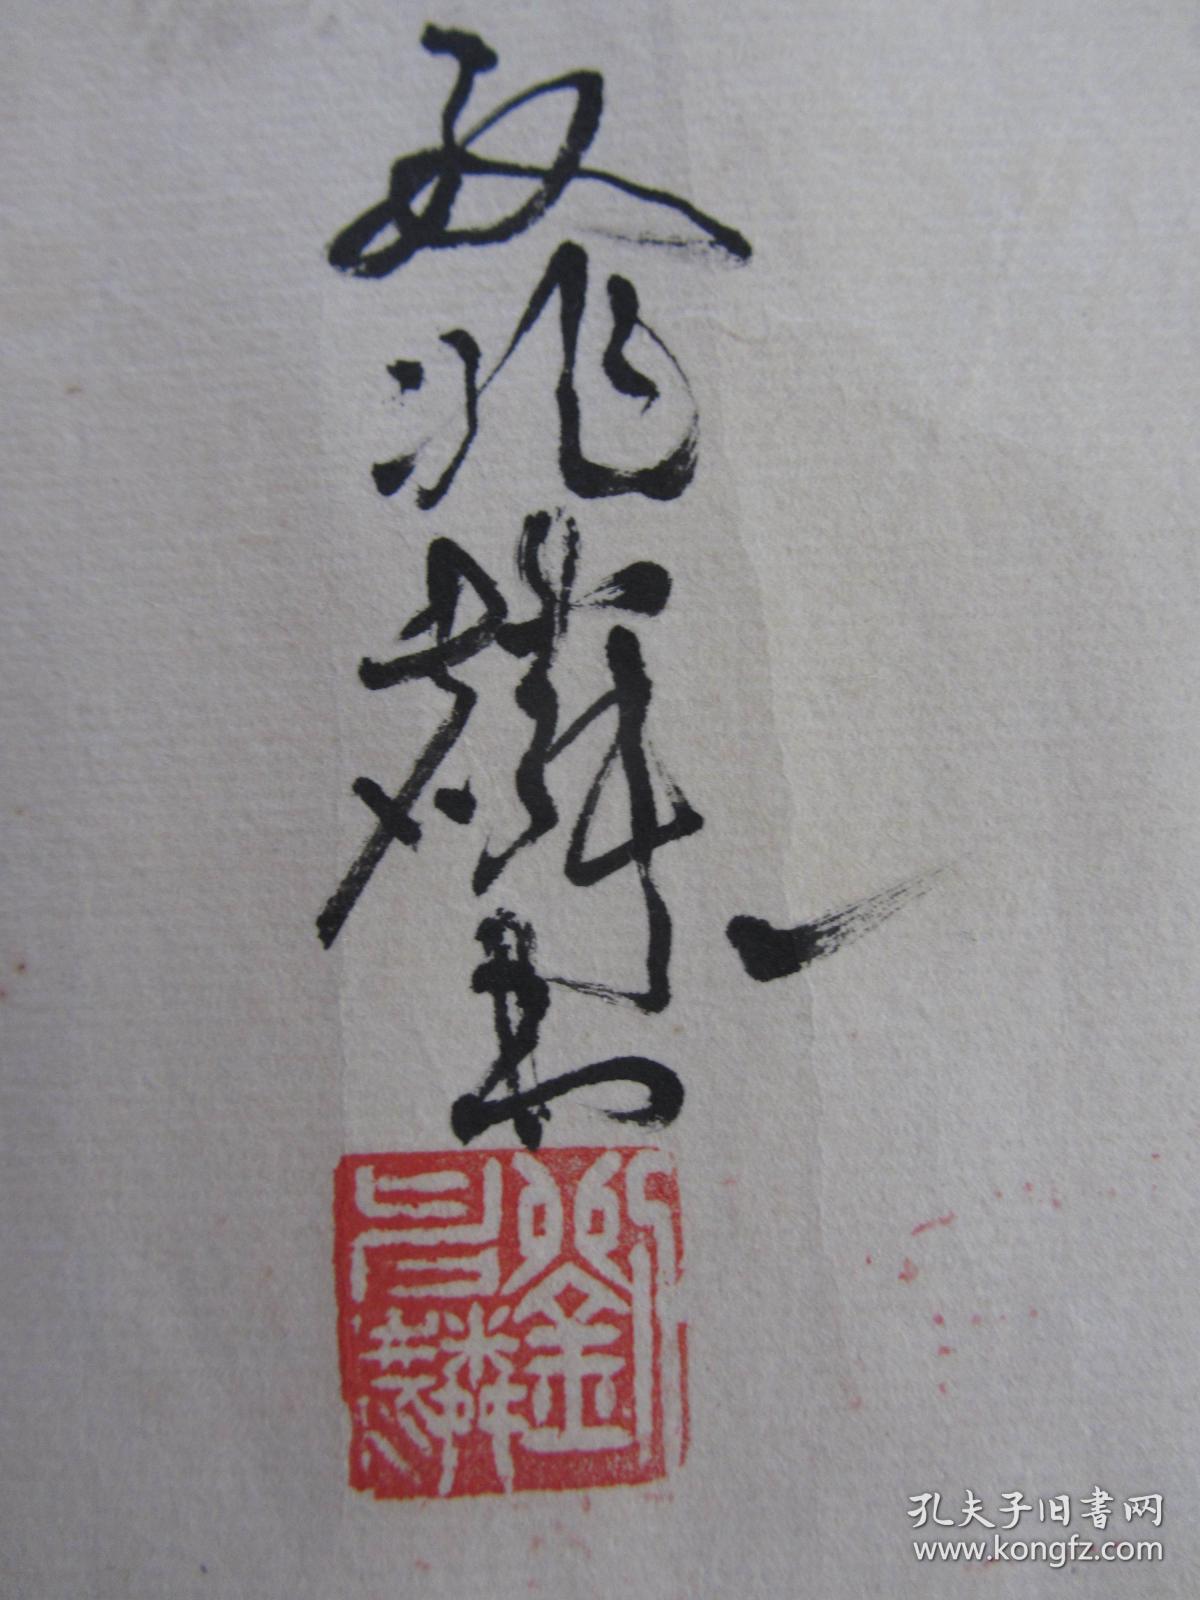 刘兆麟书
劉兆麟
孔夫子旧书网
www.kongfz.com